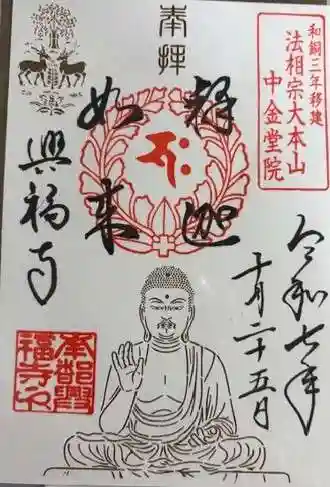 奉拝
和銅三年移建
法相宗大本山
中金堂院
令和七年
十月二十五日
釋迦
如来
興福寺